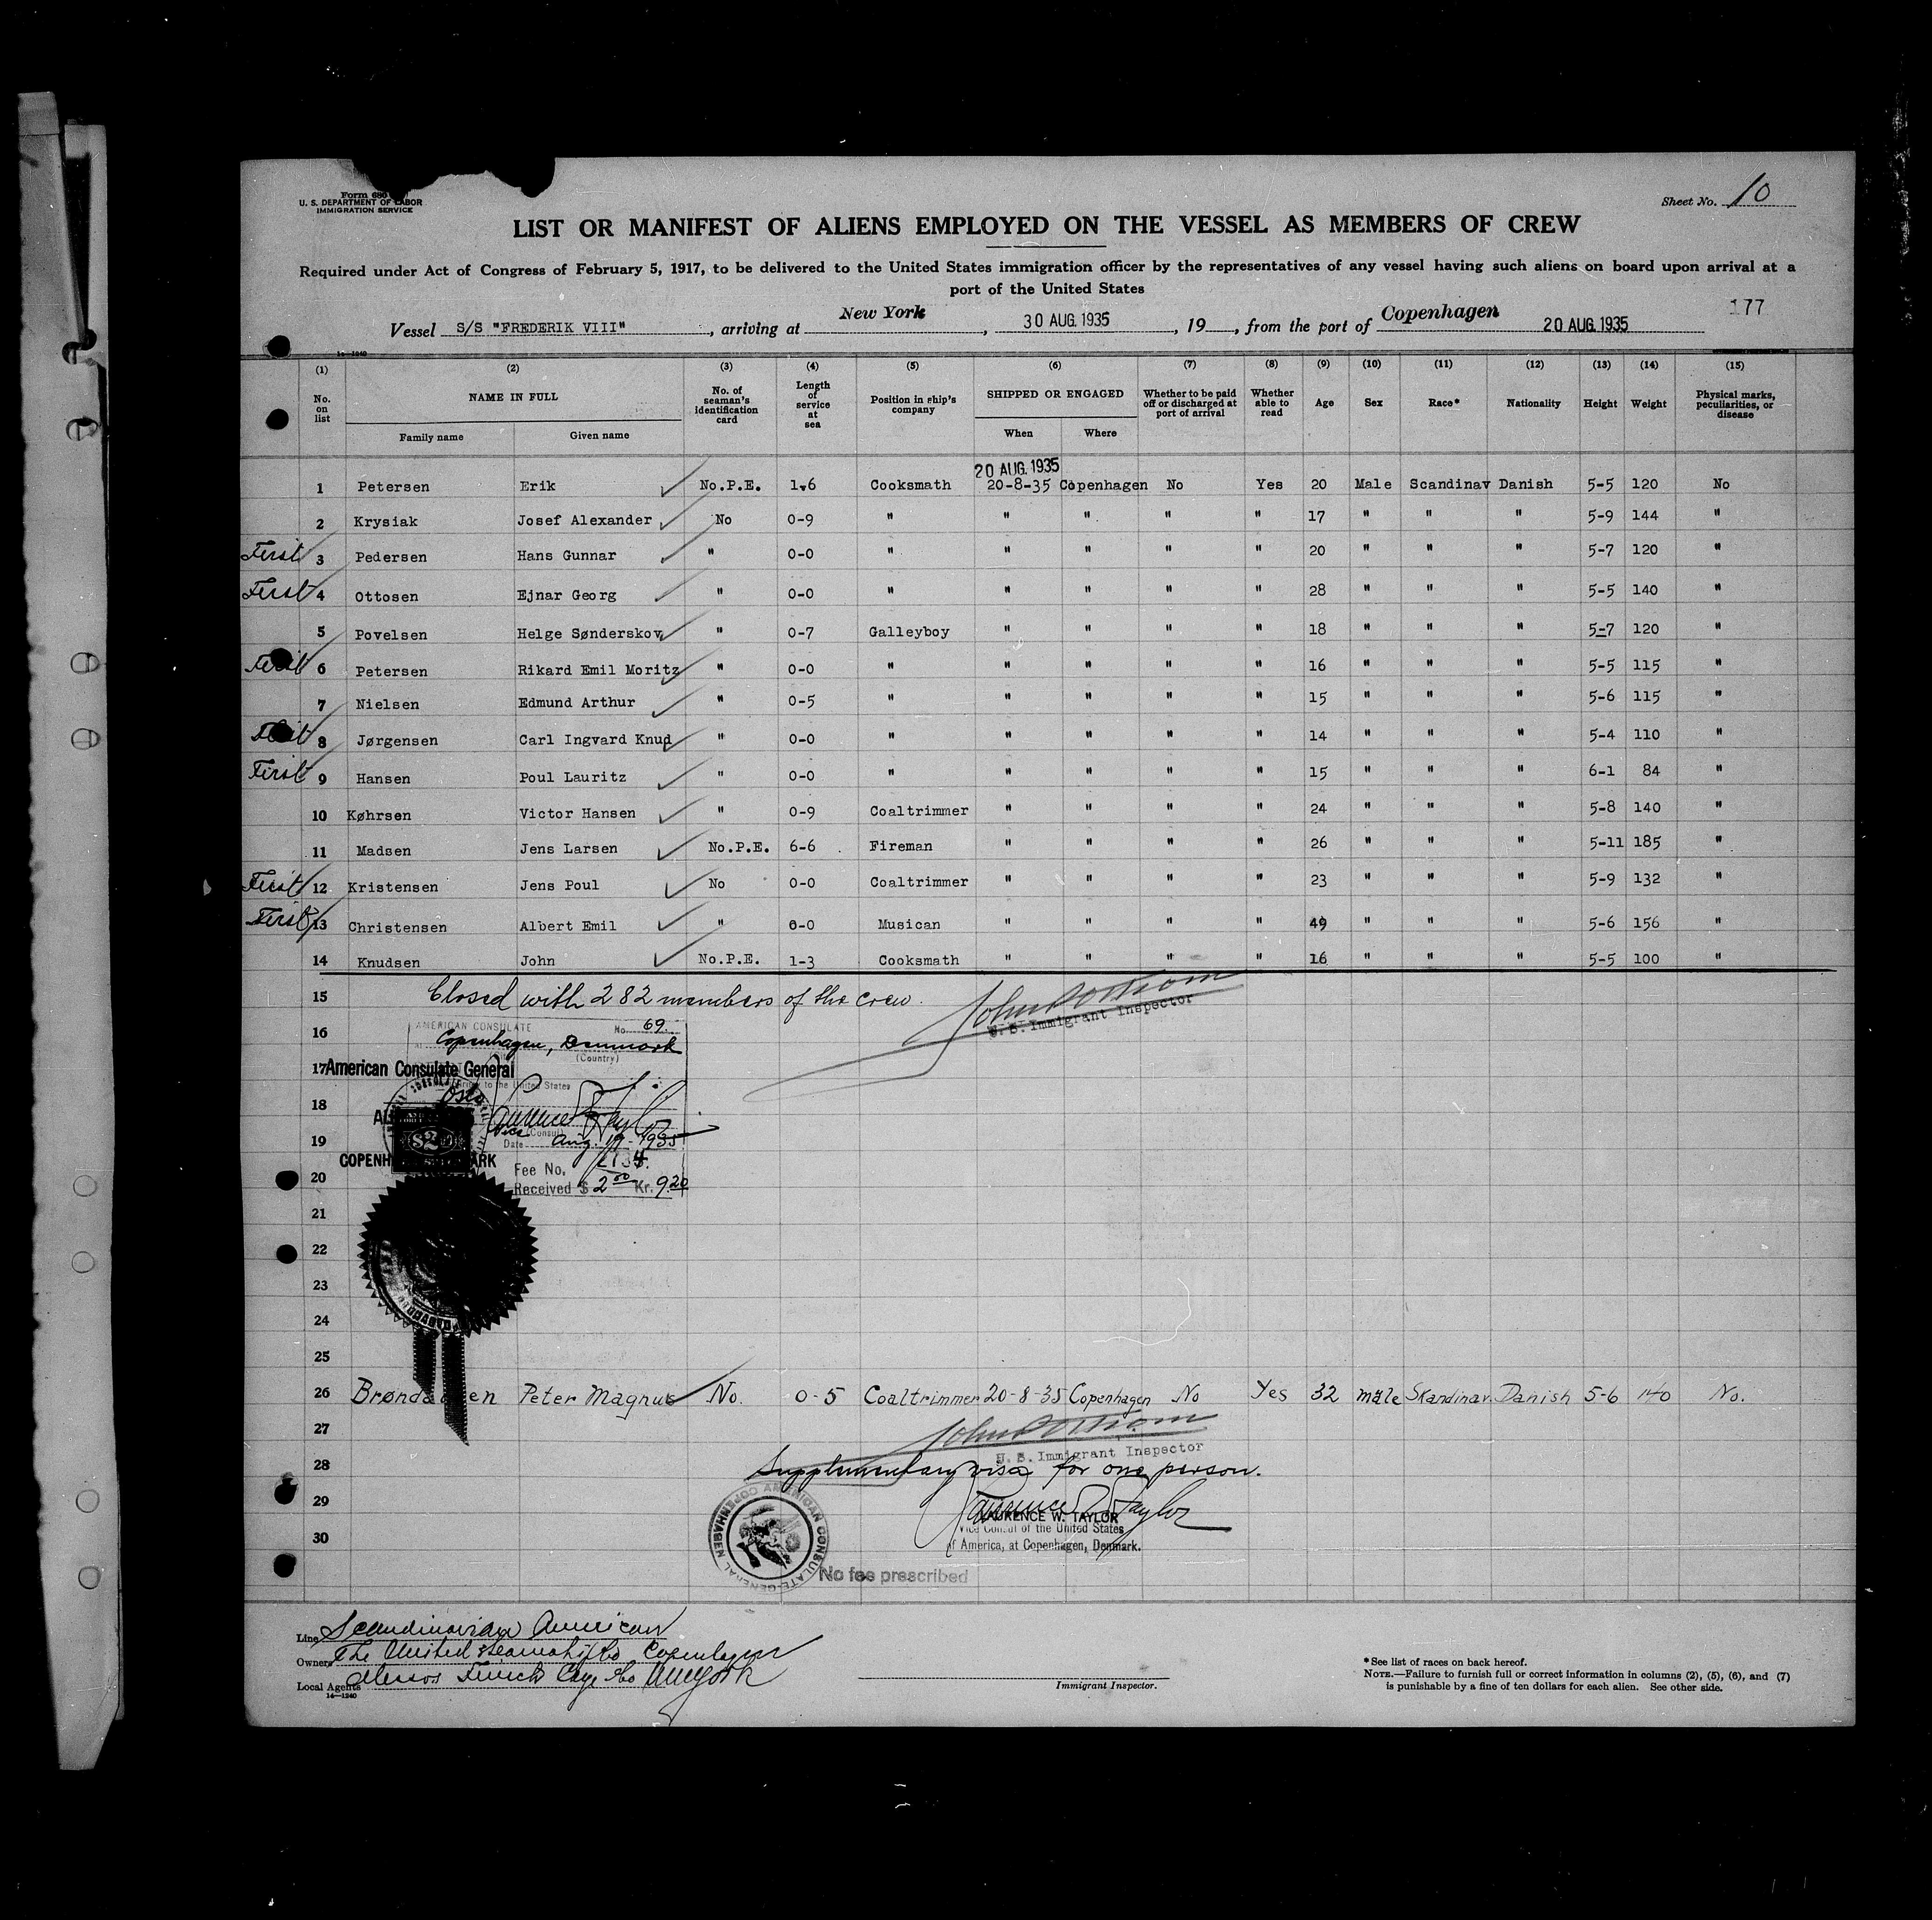 Form 680
U. S. DEPARTMENT OF LABOR
IMMIGRATION SERVICE
Sheet No. 10
LIST OR MANIFEST OF ALIENS EMPLOYED ON THE VESSEL AS MEMBERS OF CREW
Required under Act of Congress of February 5, 1917, to be delivered to the United States immigration officer by the representatives of any vessel having such aliens on board upon arrival at a
port of the United States
177
Vessel S/S "FREDERIK VIII", arriving at New York, 30 AUG. 1935, 19, from the port of Copenhagen 20 AUG. 1935
14—1240
(1) (2) (3) (4) (5) (6) (7) (8) (9) (10) (11) (12) (13) (14) (15)
No. on list NAME IN FULL Family name Given name No. of seaman's identification card Length of service at sea Position in ship's company SHIPPED OR ENGAGED When Where Whether to be paid off or discharged at port of arrival Whether able to read Age Sex Race* Nationality Height Weight Physical marks, peculiarities, or disease
20 AUG. 1935
1 Petersen Erik No.P.E. 1-6 Cooksmath 20-8-35 Copenhagen No Yes 20 Male Scandinav Danish 5-5 120 No
2 Krysiak Josef Alexander No 0-9 " " " " " 17 " " " 5-9 144 "
First 3 Pedersen Hans Gunnar " 0-0 " " " " " 20 " " " 5-7 120 "
First 4 Ottosen Ejnar Georg " 0-0 " " " " " 28 " " " 5-5 140 "
5 Povelsen Helge Sønderskov " 0-7 Galleyboy " " " " 18 " " " 5-7 120 "
First 6 Petersen Rikard Emil Moritz " 0-0 " " " " " 16 " " " 5-5 115 "
7 Nielsen Edmund Arthur " 0-5 " " " " " 15 " " " 5-6 115 "
First 8 Jørgensen Carl Ingvard Knud " 0-0 " " " " " 14 " " " 5-4 110 "
First 9 Hansen Poul Lauritz " 0-0 " " " " " 15 " " " 6-1 84 "
10 Køhrsen Victor Hansen " 0-9 Coaltrimmer " " " " 24 " " " 5-8 140 "
11 Madsen Jens Larsen No.P.E. 6-6 Fireman " " " " 26 " " " 5-11 185 "
First 12 Kristensen Jens Poul No 0-0 Coaltrimmer " " " " 23 " " " 5-9 132 "
First 13 Christensen Albert Emil " 0-0 Musican " " " " 49 " " " 5-6 156 "
14 Knudsen John No.P.E. 1-3 Cooksmath " " " " 16 " " " 5-5 100 "
15 Closed with 282 members of the crew.
U. S. Immigrant Inspector
16 AMERICAN CONSULATE No. 69.
Copenhagen, Denmark
(Country)
17 American Consulate General
to the United States
18
Laurence W. Taylor
Vice (Consul)
19 Date Aug. 19-1935
COPENH ARK
Fee No. 2134.
20 Received $ 2.00 Kr. 9.20
21
22
23
24
25
26 Brønd en Peter Magnus No. 0-5 Coaltrimmer 20-8-35 Copenhagen No Yes 32 male Skandinav. Danish 5-6 140 No.
27
U. S. Immigrant Inspector
28 Supplementary visa for one person.
29 Laurence W. Taylor
LAURENCE W. TAYLOR
Vice Consul of the United States
30 of America, at Copenhagen, Denmark.
AMERICAN CONSULATE-GENERAL COPENHAGEN
No fee prescribed
Line Scandinavian American
Owners The United Steamship Co Copenhagen
Local Agents Messrs Funch Edye & Co New York
14—1240
Immigrant Inspector.
* See list of races on back hereof.
NOTE.—Failure to furnish full or correct information in columns (2), (5), (6), and (7)
is punishable by a fine of ten dollars for each alien. See other side.